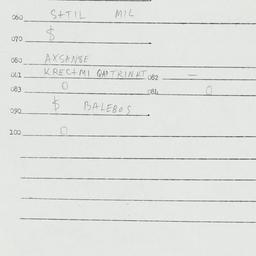 060 S+TIL MIL
070 $
080 AXSANSE
081 KREC+MI QATRINKT 082 —
083 0 084 0
090 $ BALEBOS
100 0